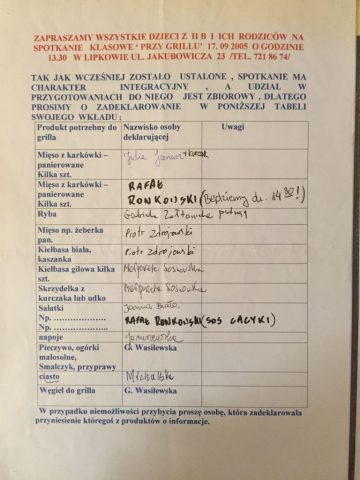 ZAPRASZAMY WSZYSTKIE DZIECI Z II B I ICH RODZICÓW NA
SPOTKANIE KLASOWE ‘ PRZY GRILLU’ 17. 09 2005 O GODZINIE
13.30 W LIPKOWIE UL. JAKUBOWICZA 23 /TEL. 721 86 74/
TAK JAK WCZEŚNIEJ ZOSTAŁO USTALONE , SPOTKANIE MA
CHARAKTER INTEGRACYJNY , A UDZIAŁ W
PRZYGOTOWANIACH DO NIEGO JEST ZBIOROWY , DLATEGO
PROSIMY O ZADEKLAROWANIE W PONIŻSZEJ TABELI
SWOJEGO WKŁADU ;
Produkt potrzebny do grilla Nazwisko osoby deklarującej Uwagi
Mięso z karkówki – panierowane Kilka szt. Julia
Mięso z karkówki – panierowane Kilka szt. RAFAŁ RONKOWSKI (Będziemy ok. 14 30!)
Ryba Gabriela pstrągi
Mięso np. żeberka pan. Piotr Zdrojewski
Kiełbasa biała, kaszanka Piotr Zdrojewski
Kiełbasa gilowa kilka szt. Małgorzata Sosnowska
Skrzydełka z kurczaka lub udko Małgorzata Sosnowska
Sałatki Joanna
Np. ……………….
Np. ……………….. RAFAŁ RONKOWSKI (SOS CACYKI)
napoje
Pieczywo, ogórki małosolne, Smalczyk, przyprawy G. Wasilewska
ciasto Michalska
Węgiel do grilla G. Wasilewska
W przypadku niemożliwości przybycia proszę osobę, która zadeklarowała
przyniesienie któregoś z produktów o informacje.